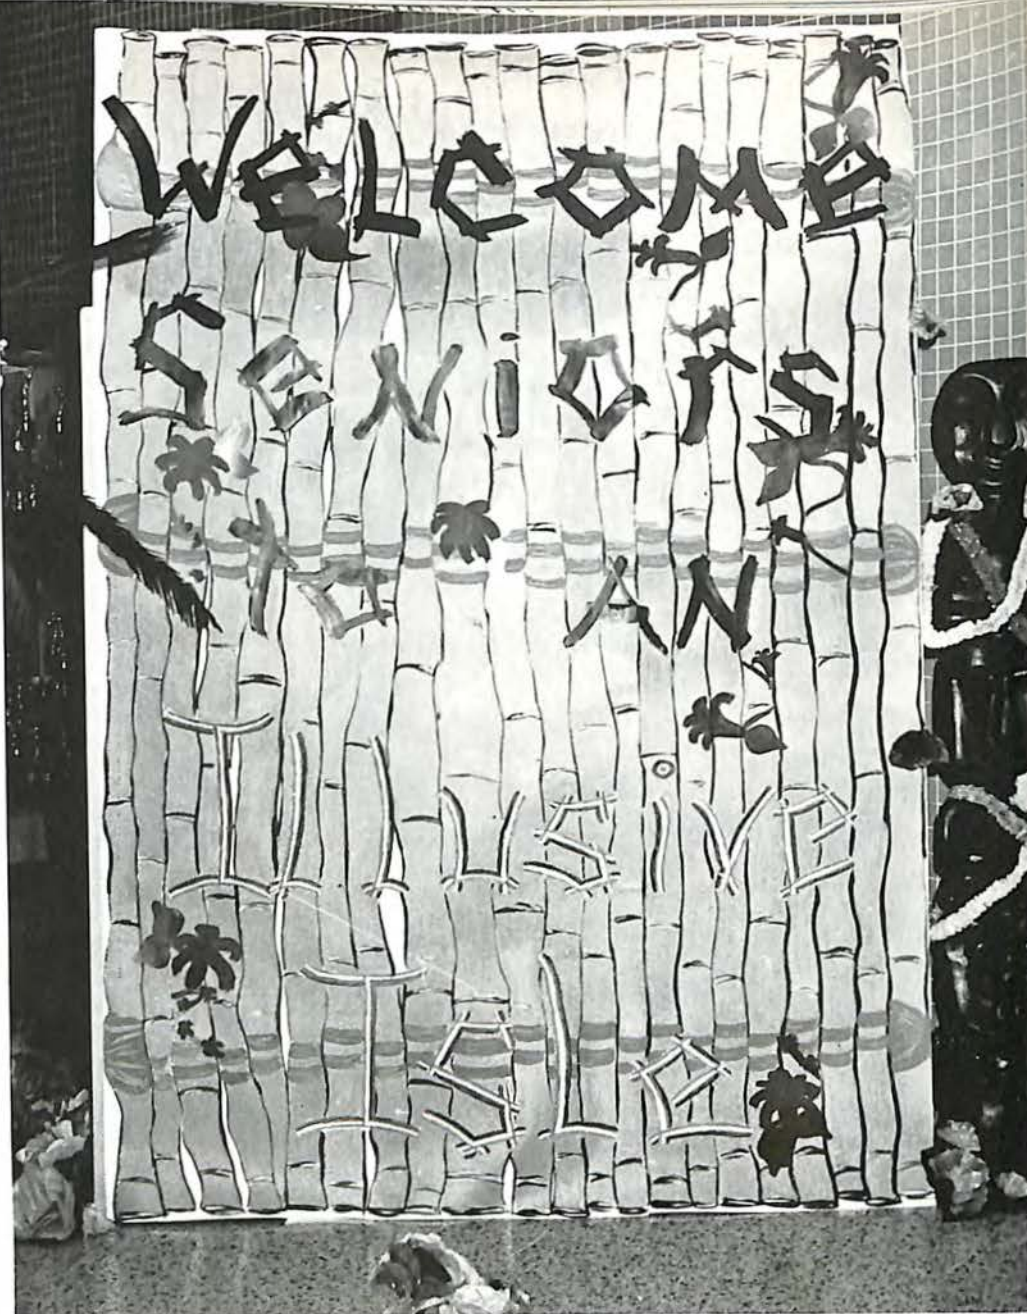 WeLCOMe
SeNiOrS
TO AN
ILLUSIVE
ISLe